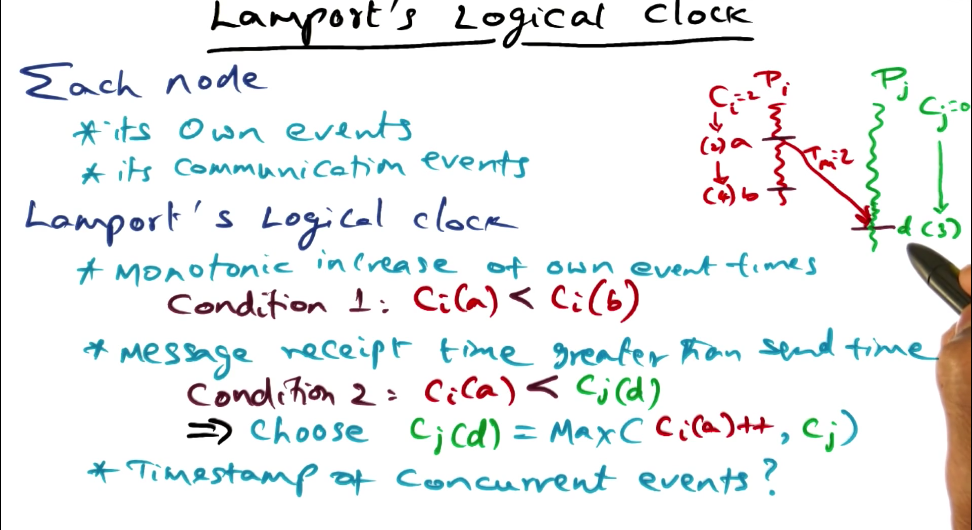 Lamport's Logical Clock
Each node
* its own events
* its communication events
Lamport's Logical clock
* Monotonic increase of own event times
Condition 1: Ci(a) < Ci(b)
* Message receipt time greater than send time
Condition 2: Ci(a) < Cj(d)
⇒ Choose Cj(d) = Max( Ci(a)++, Cj)
* Timestamp of concurrent events?
Pi
Pj
Ci=2
Cj=0
(2) a
Tm=2
(4) b
d (3)